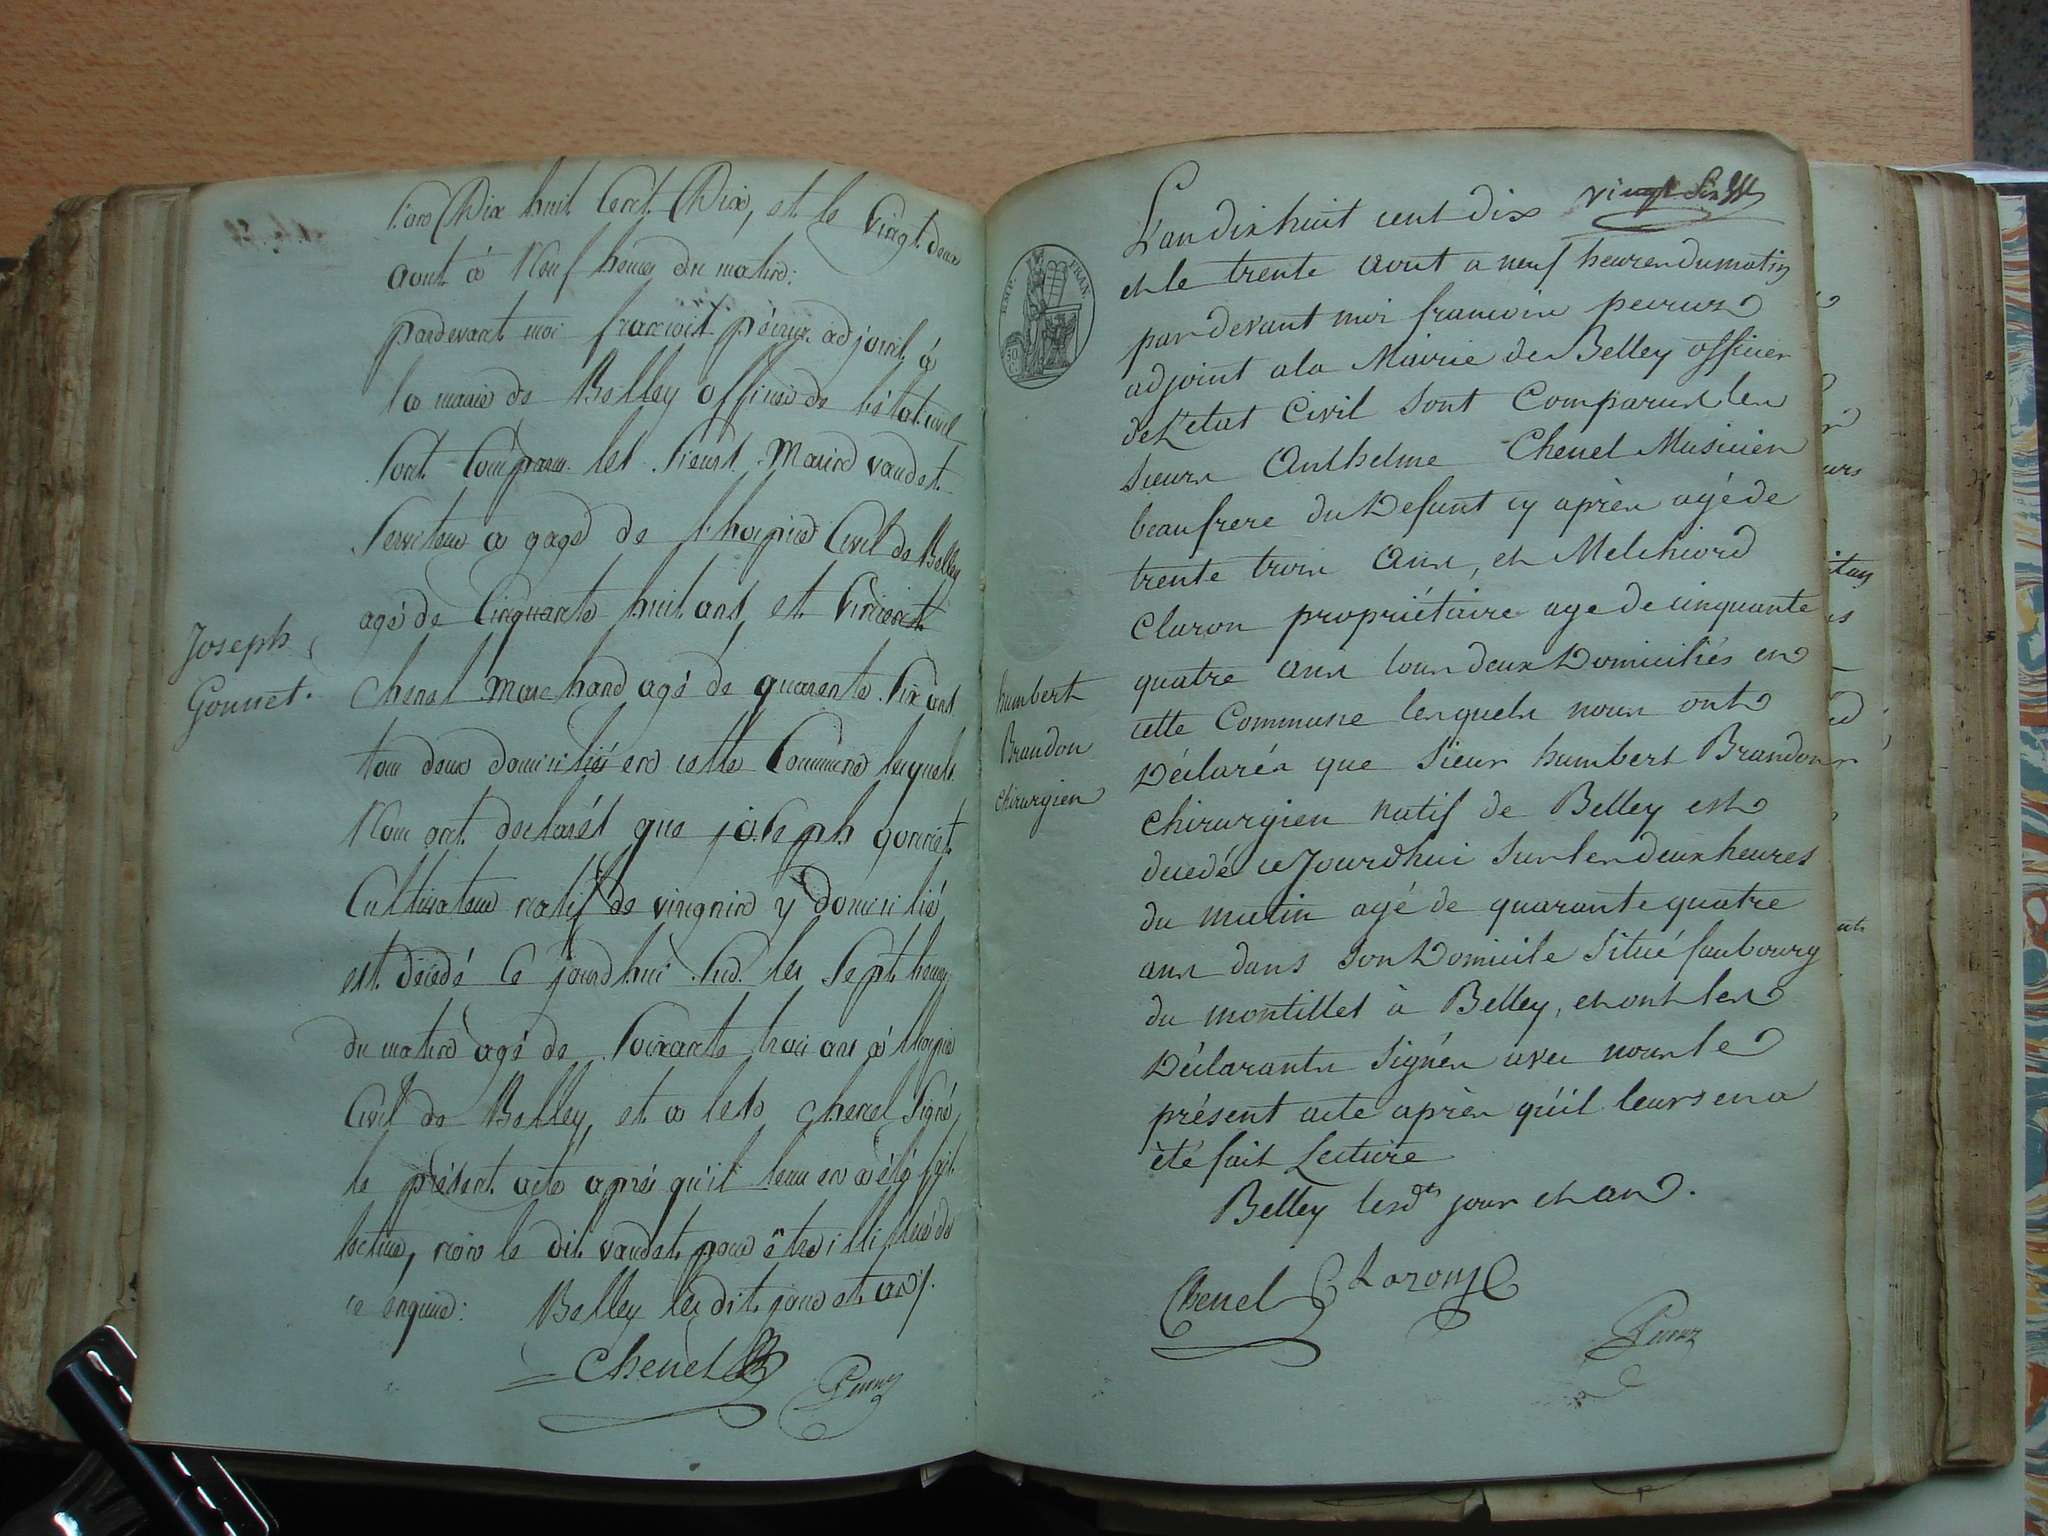 L'an Dix huit Cent Dix, et le Vingt deux
aout à Neuf heures du matin:
pardevant moi francois péroux adjoint à
la mairie de Belley officier de l'état civil
sont Comparu les sieurs Marin vaudet
Serviteur a gage de l'hospice Civil de Belley
agé de Cinquante huit ans, et Vincent
Chenel Marchand agé de quarante six ans
tous deux domiciliés en cette Commune lesquels
Nous ont declarés que joseph gonnet
Cultivateur natif de y domicilié
est décédé ce jourd'hui sur les sept heures
du matin agé de soixante trois ans à l'hospice
Civil de Belley, et a le Sr chenel signé,
le présent acte après qu'il leur en a été fait
lecture, non le dit vaudet pour être illitéré de
ce enquis: Belley les dit jour et an /.
Chenel
Joseph
Gonnet.
EMP. FRAN.
vingt six
L'an dix huit cent dix
et le trente aout a neuf heures du matin
par devant moi francois
adjoint a la Mairie de Belley officier
de L'etat Civil sont Comparus les
sieurs Anthelme Chenel Musicien
beaufrere du Defunt cy après agé de
trente trois ans, et Melchiord
Claron propriétaire age de cinquante
quatre ans tous deux Domiciliés en
cette Commune lesquels nous ont
Déclarés que sieur humbert Brandon
chirurgien natif de Belley est
decedé ce Jourdhui sur les deux heures
du matin agé de quarante quatre
ans dans son Domicile situé faubourg
du montillet à Belley, et ont les
Déclarants signés avec nous le
présent acte après qu'il leurs en a
été fait Lecture
Belley lesdts jour et an.
Chenel Claron
humbert
Brandon
chirurgien